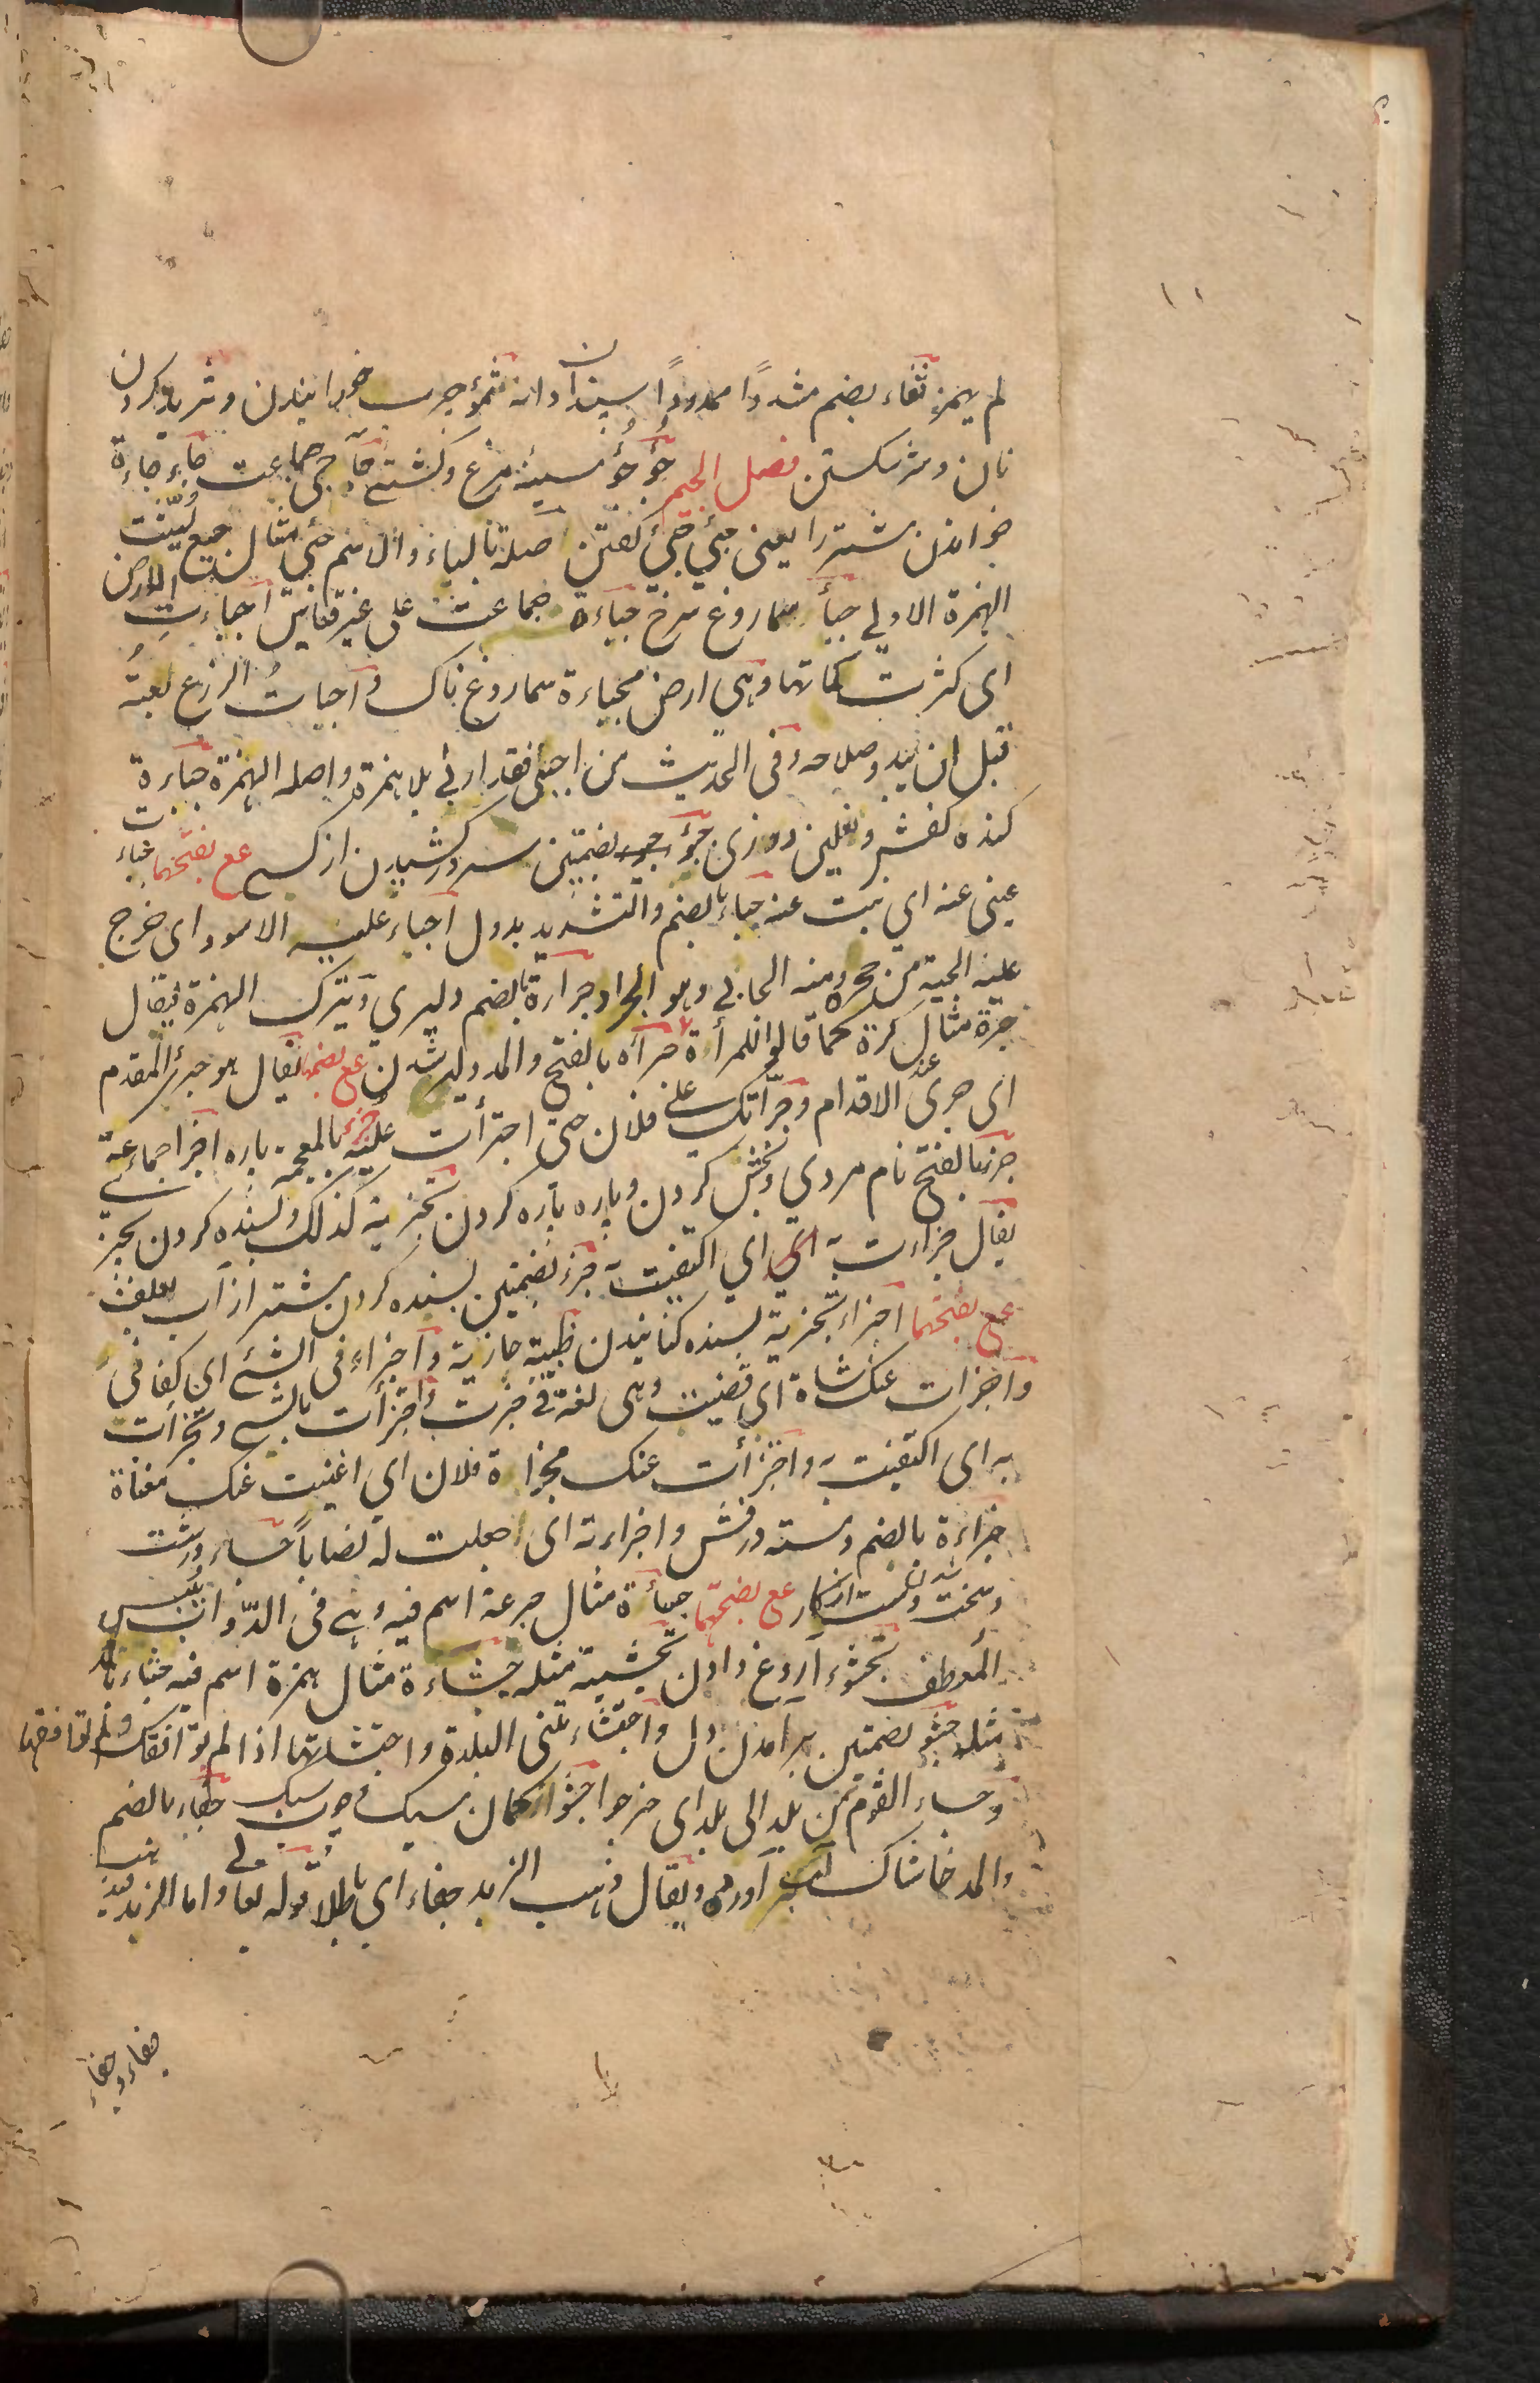 لم يهمز ثفاء بضم مشددًا ممدودًا سپندان دانه ثموء چرب خورانيدن و ثريد كردن
نان و سر شكستن فصل الجيم جؤجؤ سينه مرغ و كشتى جآجئ جماعت جأجأة
خواندن شتر را يعنى جئ جئ گفتن صلته بالباء والاسم جئ مثال جيع ليّنت
الهمزة الاولى جبأ سماروغ سرخ جباءة جماعت على غير قياس اجبأت الارض
اى كثرت كمأتها وهى ارض مجباءة سماروغ ناك و اجبأت الزرع بعته
قبل ان يبدو صلاحه وفى الحديث من اجبى فقد اربى بلا همزة واصله الهمزة جباءة
كنده كفش و نعلين دوزى جبؤ بضمتين سر در كشيدن از كسى ع ع بفتحهما جباء
عينى عنه اى نبت عنه جباء بالضم والتشديد بددل اجباء عليه الاسود اى خرج
عليه الحية من جحره ومنه الجابى وهو الجراد جراءة بالضم دليرى و يترك الهمزة فيقال
جرة مثال كرة كما قالوا للمرأة مرة جرآه بالفتح والمد دلير شدن ع ع بضمها يقال هو جرئ المقدم
اى جرئ عند الاقدام وجرّأتك على فلان حتى اجترأت عليه جزء بالمعجمة پاره اجزا جماعة
جزء بالفتح نام مردى و بخش كردن و پاره پاره كردن تجزية كذلك و بسنده كردن بچيز
يقال جزأت به اى اكتفيت به جزء بضمتين بسنده كردن شتر از آب بعلف
ع ع بفتحهما اجزاء تجزية بسنده كنانيدن ظبية جازية و اجزاء فى الشئ اى كفانى
واجزأت عنك شاة اى قضيت وهى لغة فى جزت و اجتزأت بالشئ وتجزأت
به اى اكتفيت به و اجزأت عنك مجزاة فلان اى اغنيت عنك مغناة
جزاءة بالضم دسته درفش و اجزاءته اى جعلت له نصابًا جساء درشت
و سخت شدن دست از كار ع ع بفتحهما جسأة مثال جرعة اسم فيه وهى فى الدواب يبس
المعطف تجشؤ آروغ دادن تجشية مثله جشاءة مثال همزة اسم فيه جشاء بالمد
مثله جشؤ بضمتين برآمدن دل واجتشاء تنى البلدة واجتشأتها اذا لم توافقك ولم توافقها
وجساء القوم من بلد الى بلد اى خرجوا جشؤ كمان سبك و چوب سبك جفاء بالضم
والمد خاشاك آب آورده ويقال ذهب الزبد جفاء اى باطلا قوله تعالى واما الزبد فيذهب
جفاء و جفاء